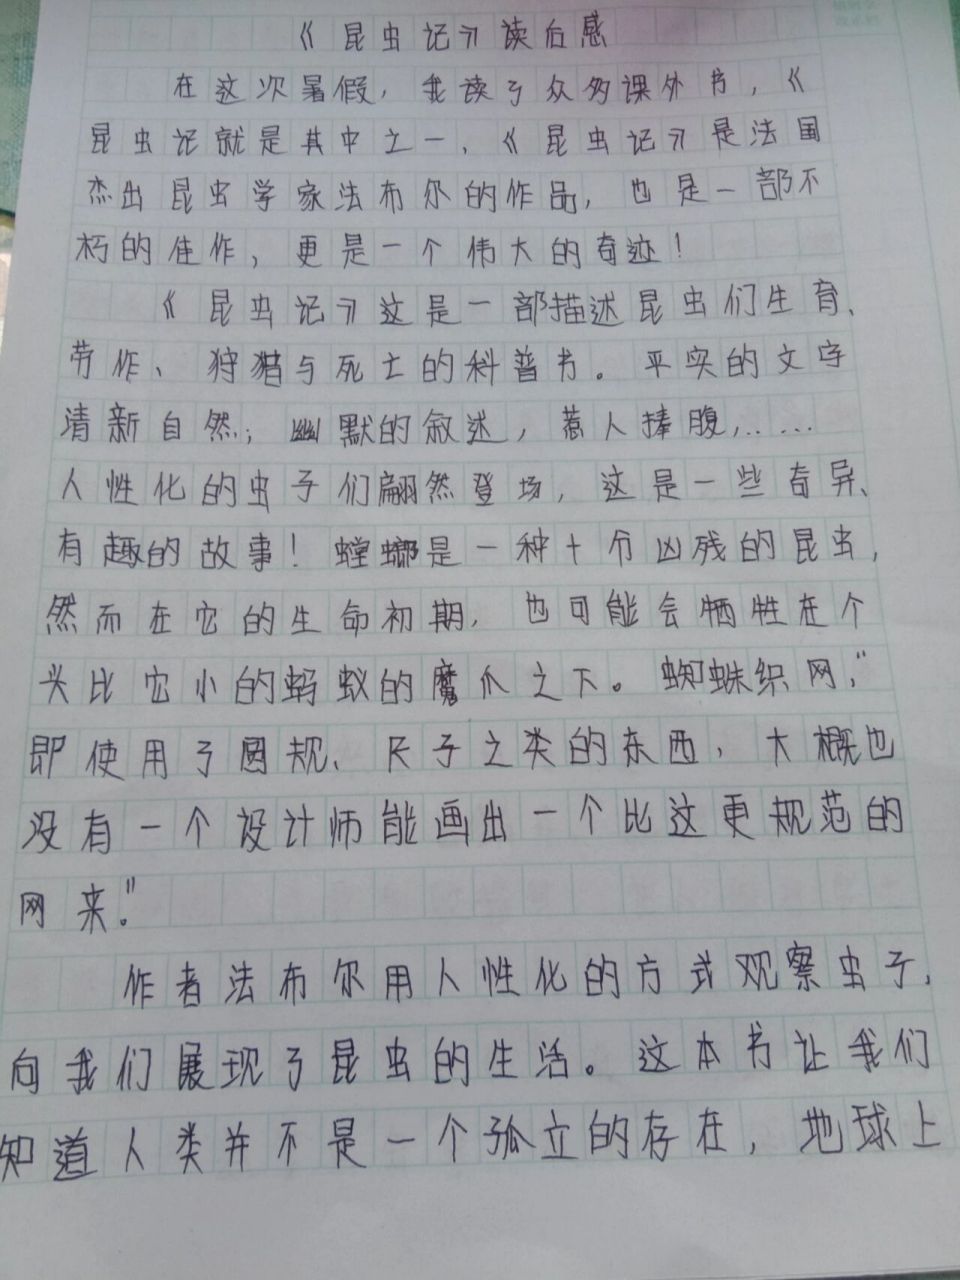 《昆虫记》读后感
在这次暑假，我读了众多课外书，《
昆虫记就是其中之一，《昆虫记》是法国
杰出昆虫学家法布尔的作品，也是一部不
朽的佳作，更是一个伟大的奇迹！
《昆虫记》这是一部描述昆虫们生育、
劳作、狩猎与死亡的科普书。平实的文字
清新自然；幽默的叙述，惹人捧腹，……
人性化的虫子们翩然登场，这是一些奇异、
有趣的故事！螳螂是一种十分凶残的昆虫，
然而在它的生命初期，也可能会牺牲在个
头比它小的蚂蚁的魔爪之下。蜘蛛织网，"
即使用了圆规、尺子之类的东西，大概也
没有一个设计师能画出一个比这更规范的
网来。"
作者法布尔用人性化的方式观察虫子，
向我们展现了昆虫的生活。这本书让我们
知道人类并不是一个孤立的存在，地球上